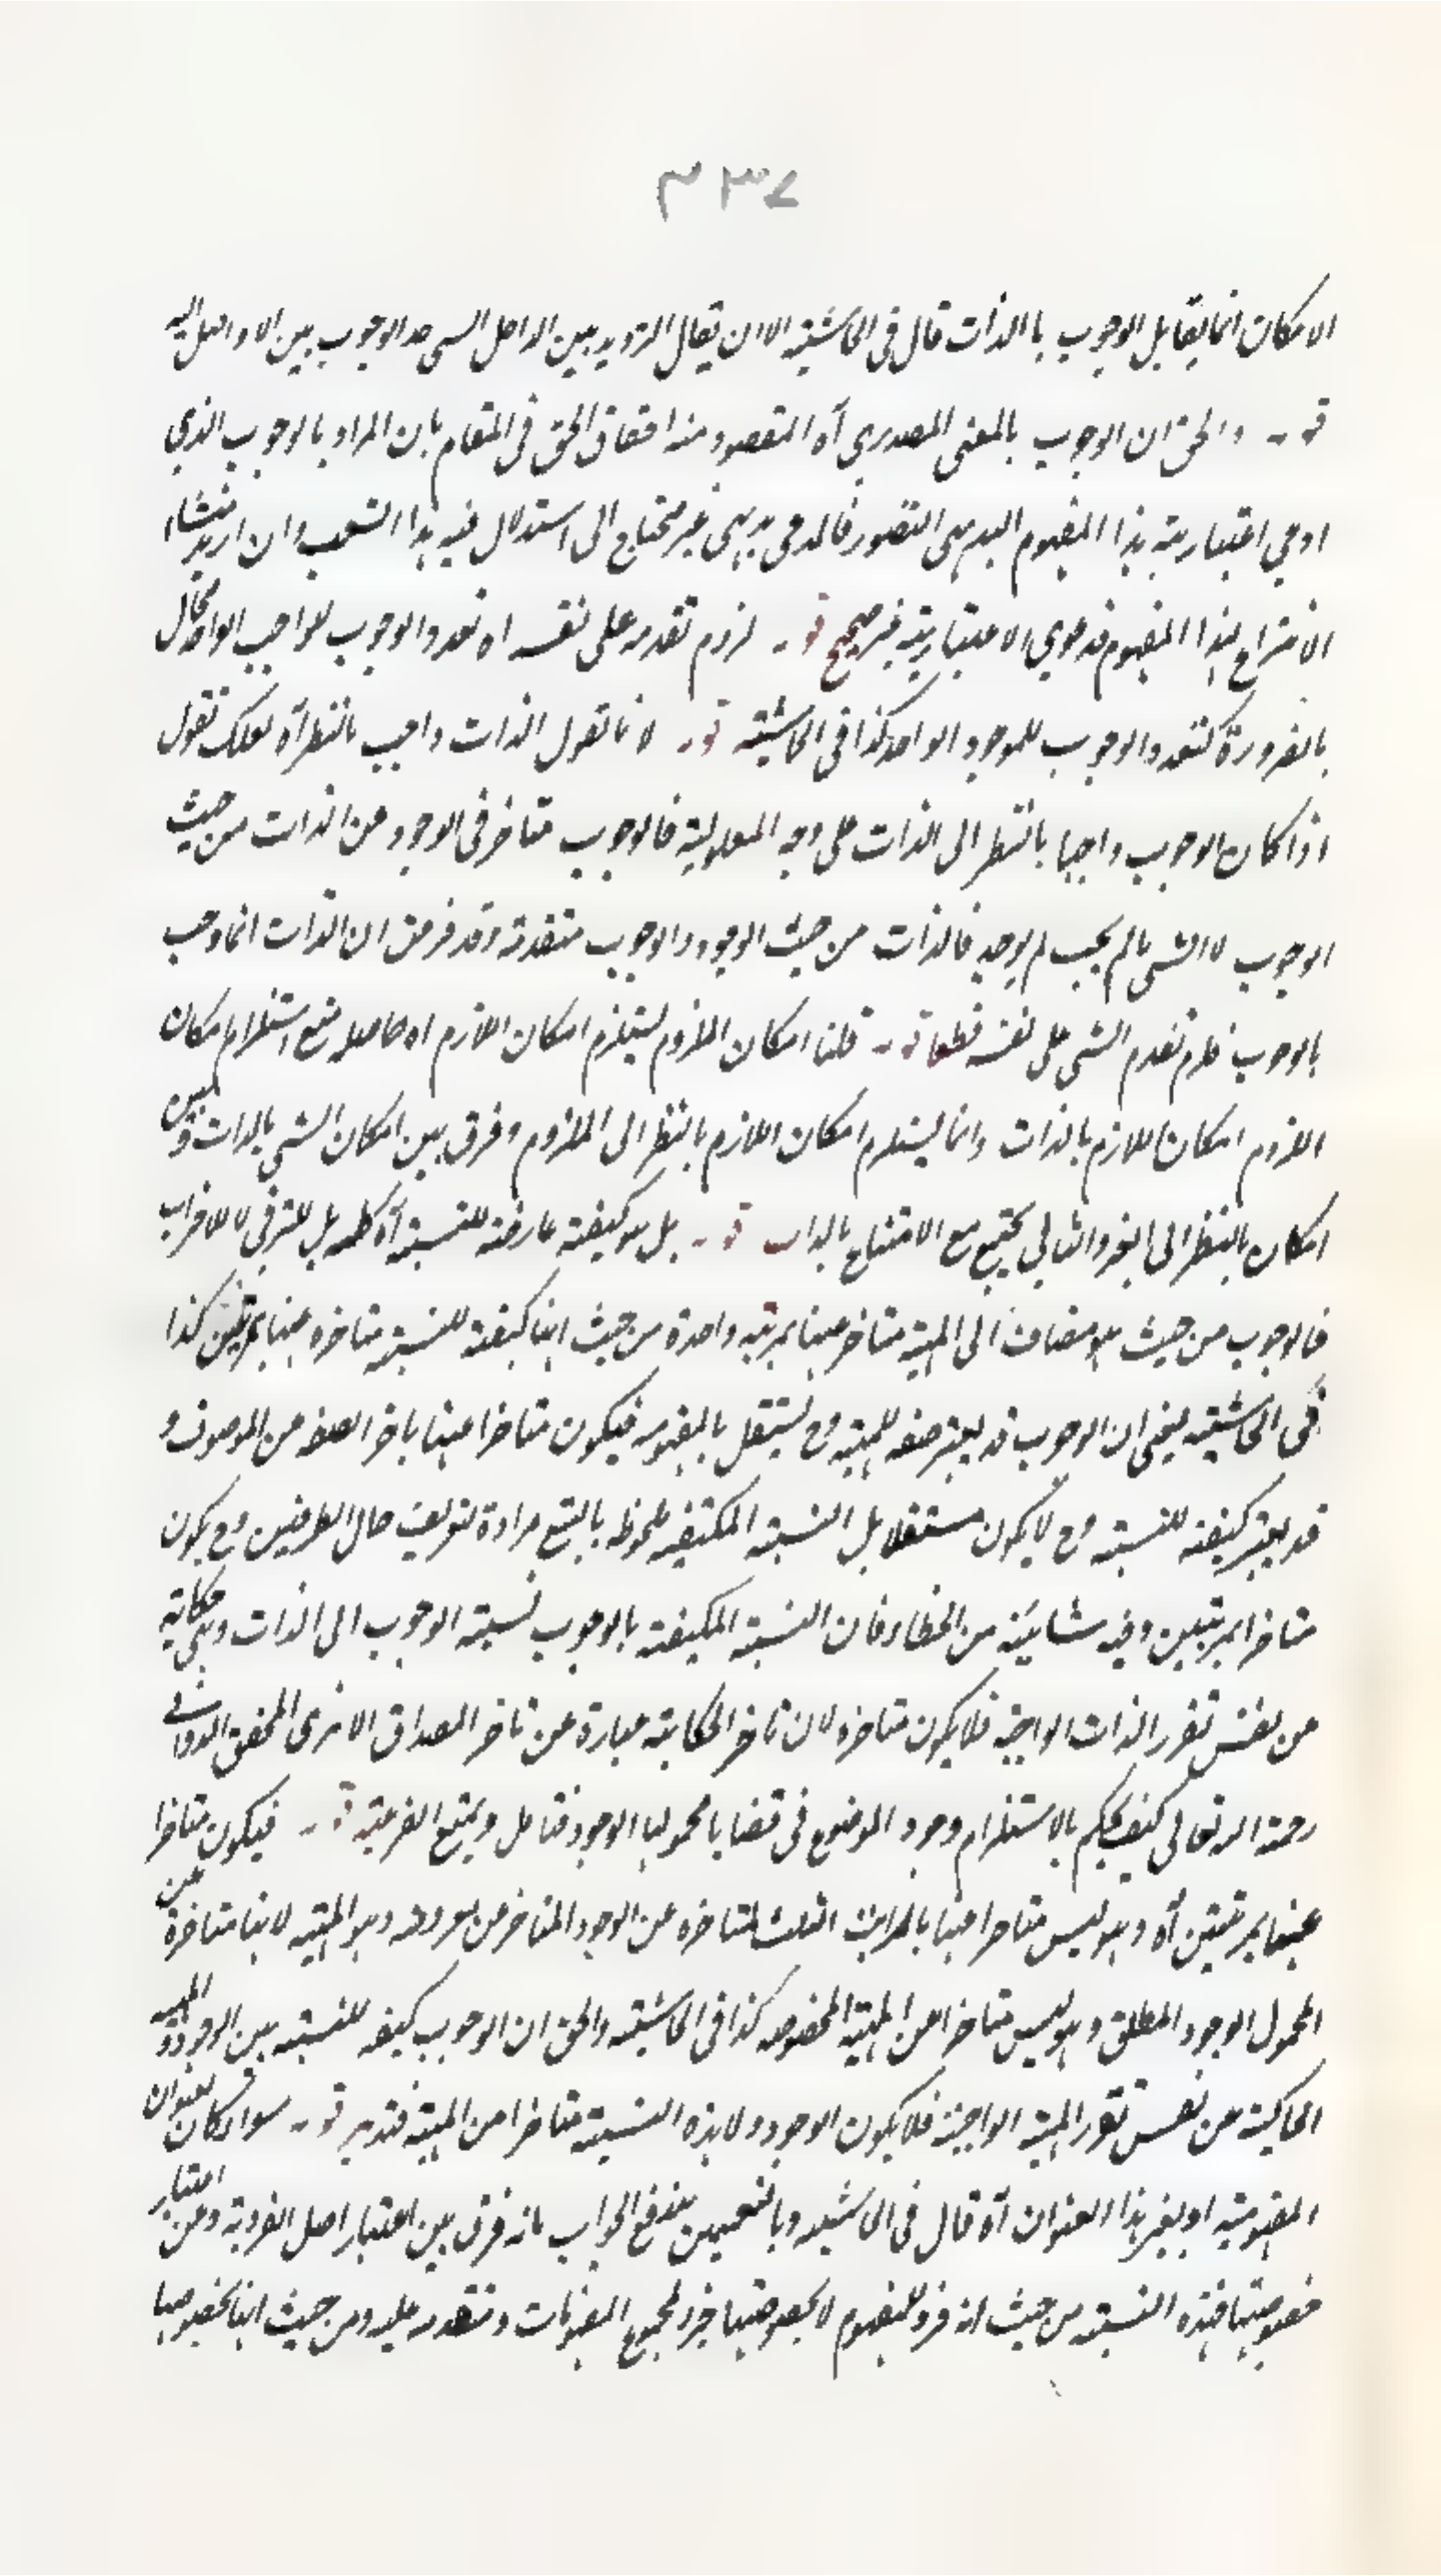 الامكان انما يقابل الوجوب بالذات قال فى الحاشية الا ان يقال الترديد بين الداخل الوجوب بين
قوله والحق ان الوجوب بالمعنى المصدري آه المقصود منه احقاق الحق فى المقام بان المراد بالوجوب الذي
ادعي اعتباريته هذا المفهوم البديهى التصور فالمدعى بديهى غير محتاج الى استدلال فيه هذا الشعب وان اريد منشاء
الانتزاع لهذا المفهوم فدعوي الاعتبارية غير صحيح قوله لزوم تقدمه على نفسه اه تعدد الوجوب لواجب الواحد محال
بالضرورة كتعدد الوجوب للموجود الواحد كذا فى الحاشية قوله لانا نقول الذات واجب بالنظر آه لعلك تقول
اذا كان الوجوب واجبا بالنظر الى الذات على وجه المعلولية فالوجوب متاخر فى الوجود عن الذات من حيث
الوجوب لا الشى ما لم يجب لم يوجد فالذات من حيث الوجود والوجوب متقدمة وقد فرض ان الذات انما وجب
بالوجوب فلزم تقدم الشى على نفسه قطعا قوله قلنا امكان الملزوم يستلزم امكان اللازم اه حاصله منع استلزام امكان
الملزوم امكان اللازم بالذات وانما يستلزم امكان اللازم بالنظر الى الملزوم وفرق بين امكان الشى بالذات وبين
امكان بالنظر الى الغير والثاني يجتمع مع الامتناع بالذات قوله بل هو كيفية عارضة للنسبة آه كلمة بل للترقى لا للاضراب
فالوجوب من حيث هو مضاف الى المهية متاخر عنها بمرتبة واحدة من حيث انها كيفية للنسبة متاخرة عنها بمرتبتين كذا
فى الحاشية يعنى ان الوجوب قد يعتبر صفة للمهية وح يستقل بالمفهومية فيكون متاخرا عنها تاخر الصفة من الموصوف و
قد يعتبر كيفية للنسبة وح لا يكون مستقلا بل النسبة المكيفة ملحوظة بالتبع مراءة لتعريف حال الطرفين وح يكون
متاخرا بمرتبتين وفيه شائبة من الخطاء فان النسبة المكيفة بالوجوب نسبة الوجوب الى الذات وهى حكاية
من نفس تقرر الذات الواجبة فلا يكون متاخرة لان تاخر الحكاية عبارة عن تاخر المصداق الا ترى المحقق الدواني
رحمة الله تعالى كيف يحكم بالاستلزام وجود الموضوع فى قضايا محمولها الوجود فتامل ويمنع الفرعية قوله فيكون متاخرا
عنها بمرتبتين آه وهو ليس متاخرا عنها بالمراتب الثلث المتاخرة عن الوجود المتاخر من معروضه وهو المهية لانها متاخرة عن
المحمول الوجود المطلق وهو ليس متاخرا عن المهية المخصوصة كذا فى الحاشية والحق ان الوجوب كيفية للنسبة بين الوجود والمهية
الحاكية عن نفس تقرر المهية الواجبة فلا يكون الوجود ولا هذه النسبة متاخرا من المهية فتدبر قوله سواء كان بعنوان
المفهومية او بغير هذا العنوان آه قال فى الحاشية وبالتعميم يندفع الجواب بانه فرق بين اعتبار اصل الفردية وعن اعتبار
خصوصيتها فهذه النسبة من حيث انه فرد للمفهوم لا بخصوصيتها جزء لمجموع المفهومات ومتقدمه عليه ومن حيث انها بخصوصها